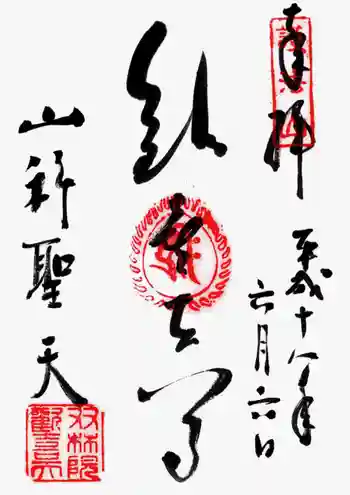 奉拝
平成十八年
六月六日
歓喜天尊
山科聖天
双林院
歡喜天